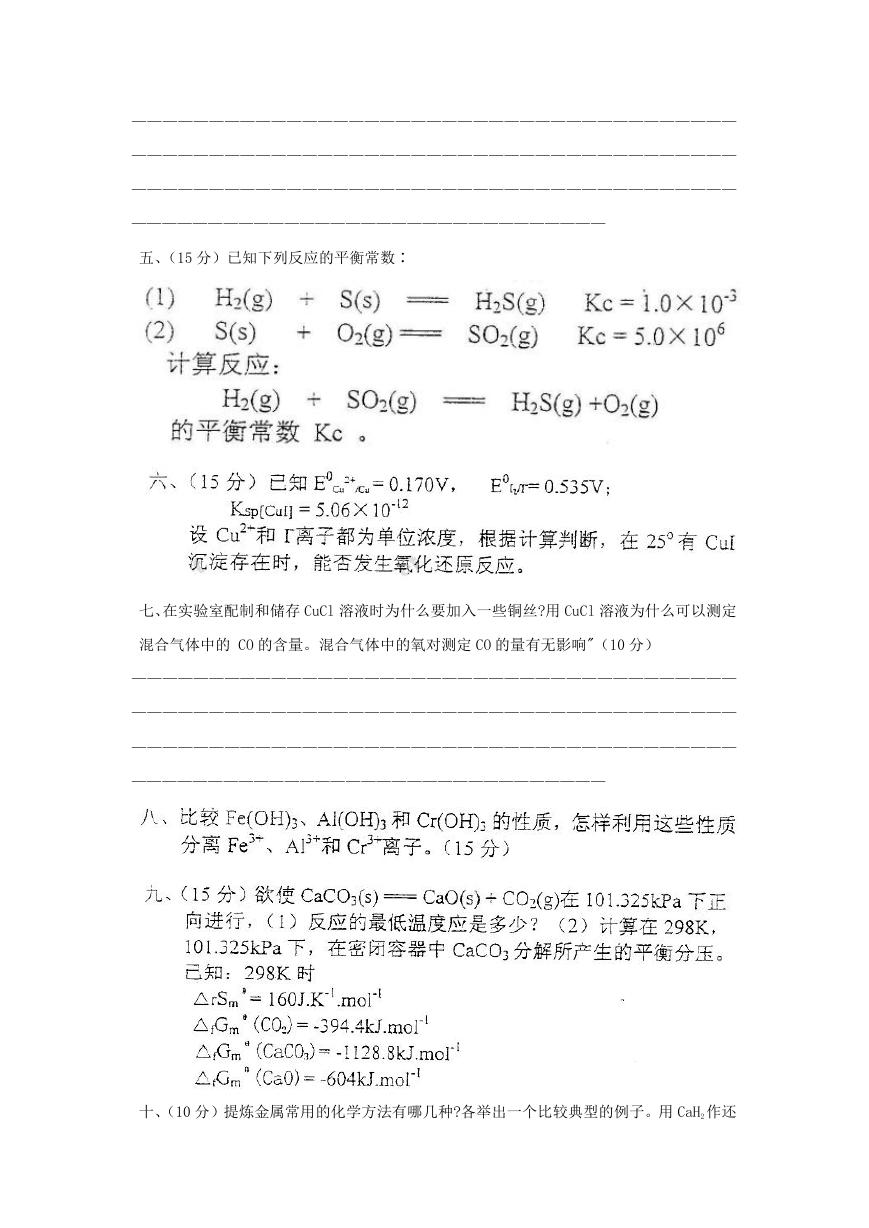 五、（15 分）已知下列反应的平衡常数：
(1) H₂(g) + S(s) ══ H₂S(g) Kc = 1.0×10⁻³
(2) S(s) + O₂(g) ══ SO₂(g) Kc = 5.0×10⁶
计算反应：
H₂(g) + SO₂(g) ══ H₂S(g) +O₂(g)
的平衡常数 Kc 。
六、（15 分）已知 E⁰Cu²⁺/Cu = 0.170V， E⁰I₂/I⁻= 0.535V；
Ksp[CuI] = 5.06×10⁻¹²
设 Cu²⁺和 I⁻离子都为单位浓度，根据计算判断，在 25° 有 CuI
沉淀存在时，能否发生氧化还原反应。
七、在实验室配制和储存 CuCl 溶液时为什么要加入一些铜丝?用 CuCl 溶液为什么可以测定
混合气体中的 CO 的含量。混合气体中的氧对测定 CO 的量有无影响"（10 分）
八、比较 Fe(OH)₃、Al(OH)₃ 和 Cr(OH)₃ 的性质，怎样利用这些性质
分离 Fe³⁺、Al³⁺和 Cr³⁺离子。（15 分）
九、（15 分）欲使 CaCO₃(s) ══ CaO(s) + CO₂(g)在 101.325kPa 下正
向进行，（1）反应的最低温度应是多少？（2）计算在 298K，
101.325kPa 下，在密闭容器中 CaCO₃ 分解所产生的平衡分压。
已知：298K 时
△rSm° = 160J.K⁻¹.mol⁻¹
△fGm° (CO₂) = -394.4kJ.mol⁻¹
△fGm° (CaCO₃) = -1128.8kJ.mol⁻¹
△fGm° (CaO) = -604kJ.mol⁻¹
十、（10 分）提炼金属常用的化学方法有哪几种?各举出一个比较典型的例子。用 CaH₂ 作还